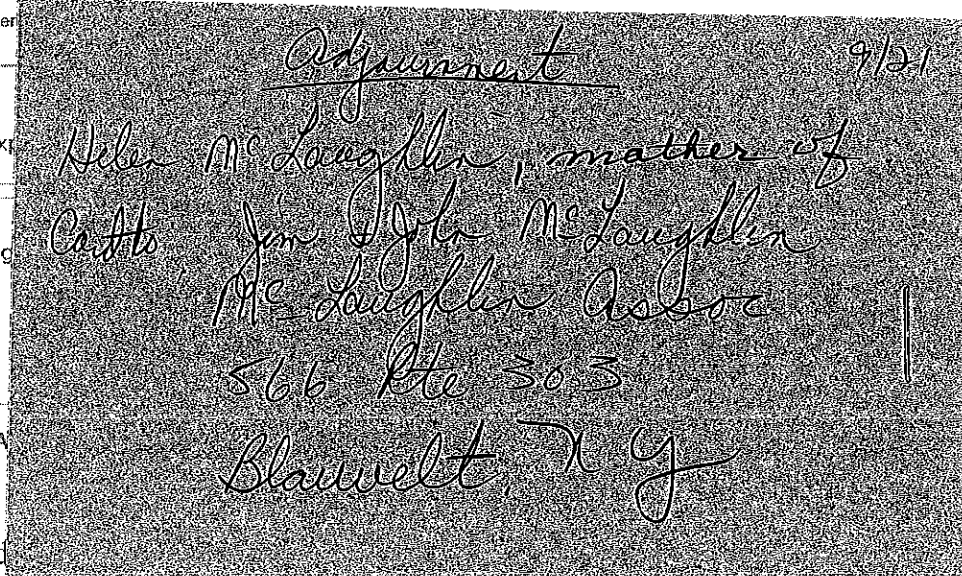 Adjournment 9/21
Helen McLaughlin, mother of
Jim & John McLaughlin
McLaughlin Assoc
566 Rte 303
Blauvelt, N Y